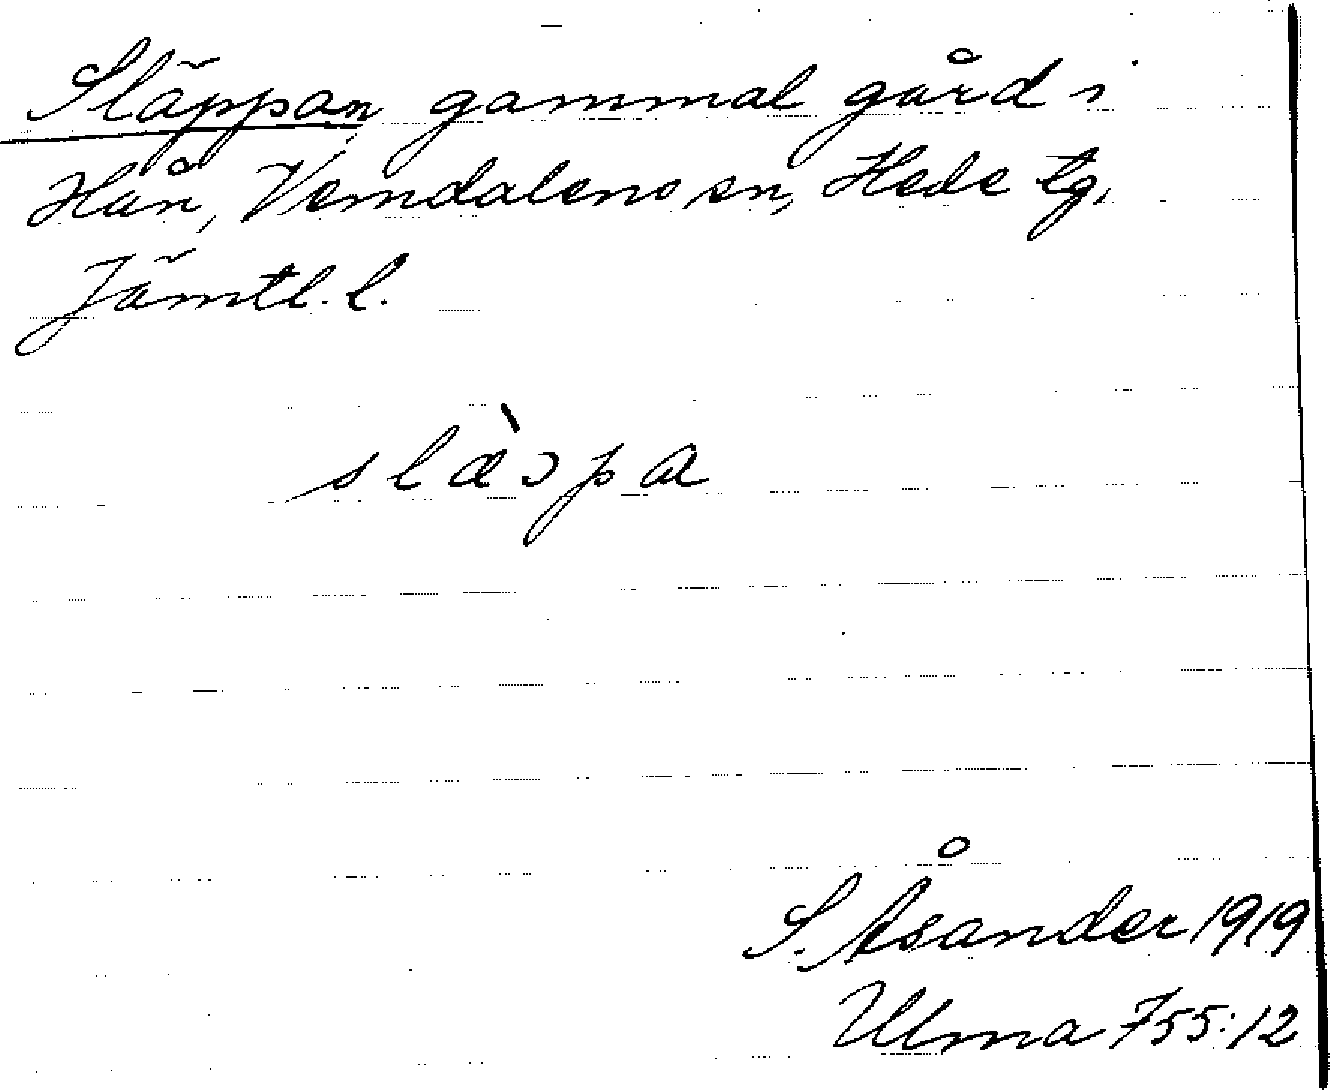 Släppan, gammal gård i
Hån, Vemdalens sn, Hede tg,
Jämtl. l.
slæ̀ɔpa
S. Åsander 1919
Ulma 755:12